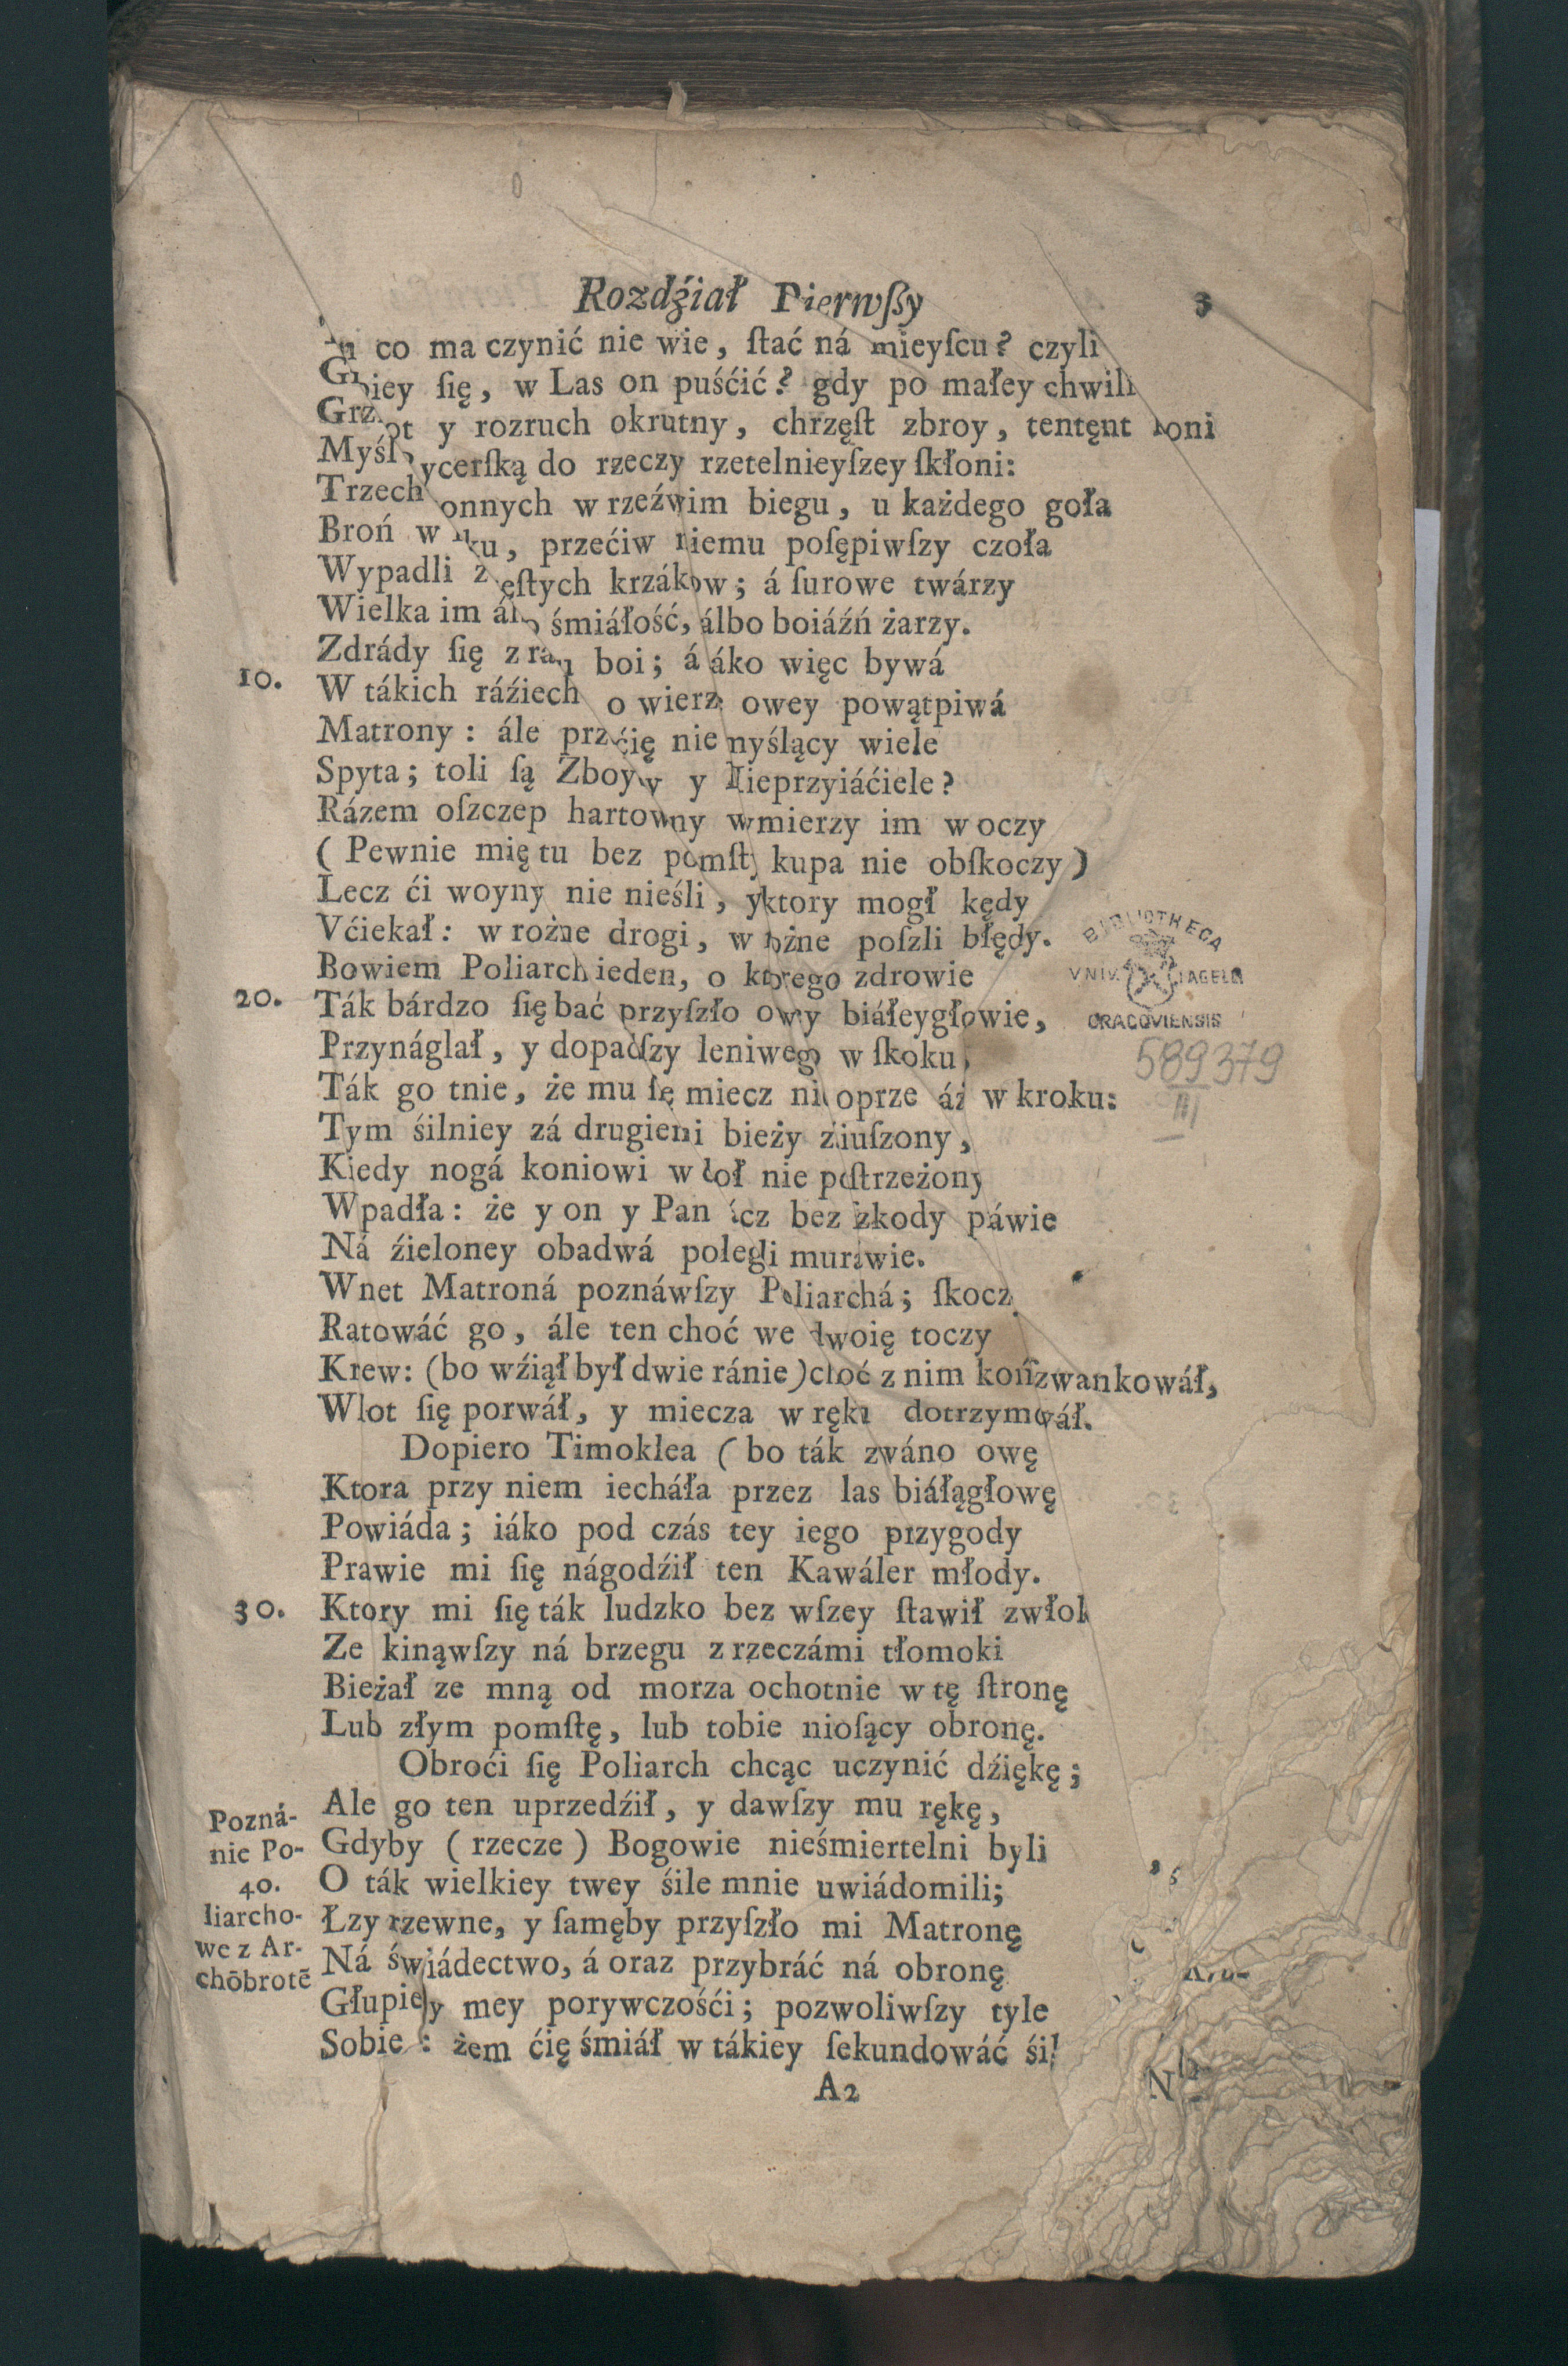 Rozdźiał Pierwſßy 3
co ma czynić nie wie, ſtać ná mieyſcu? czyli
ſię, w Las on puśćić? gdy po małey chwili
y rozruch okrutny, chrzęſt zbroy, tentęnt koni
Myśl ycerſką do rzeczy rzetelnieyſzey ſkłoni:
Trzech onnych w rzeźwim biegu, u każdego goła
Broń w ku, przećiw niemu poſępiwſzy czoła
Wypadli z ęſtych krzákow; á ſurowe twárzy
Wielka im álbo śmiáłość, álbo boiáźń żarzy.
Zdrády ſię z razu boi; á áko więc bywá
10. W tákich ráźiech o wierz owey powątpiwá
Matrony: ále przećię nie myślący wiele
Spyta; toli ſą Zboycy y Nieprzyiáćiele?
Rázem oſzczep hartowny wmierzy im w oczy
( Pewnie mię tu bez pomſty kupa nie obſkoczy )
Lecz ći woyny nie nieśli, y ktory mogł kędy
Vćiekał: w rożne drogi, w rożne poſzli błędy.
Bowiem Poliarch ieden, o ktorego zdrowie
20. Ták bárdzo ſię bać przyſzło owey biáłeygłowie,
Przynáglał, y dopadſzy leniwego w ſkoku,
Ták go tnie, że mu ſię miecz nie oprze áż w kroku:
Tym śilniey zá drugiem bieży ziuſzony,
Kiedy nogá koniowi w doł nie poſtrzeżony
Wpadła: że y on y Pan ácz bez szkody páwie
Ná źieloney obadwá polegli muráwie.
Wnet Matroná poznáwſzy Poliarchá; ſkoczy
Ratowáć go, ále ten choć we dwoię toczy
Krew: (bo wźiął był dwie ránie) choć z nim koń zwankowáł,
Wlot ſię porwáł, y miecza w ręku dotrzymowáł.
Dopiero Timoklea ( bo ták zwáno owę
Ktora przy niem iecháła przez las biáłągłowę
Powiáda; iáko pod czás tey iego przygody
Prawie mi ſię nágodźił ten Kawáler młody.
30. Ktory mi ſię ták ludzko bez wſzey ſtawił zwłok
Ze kinąwſzy ná brzegu z rzeczámi tłomoki
Bieżał ze mną od morza ochotnie w tę ſtronę
Lub złym pomſtę, lub tobie nioſący obronę.
Obroći ſię Poliarch chcąc uczynić dźiękę;
Ale go ten uprzedźił, y dawſzy mu rękę,
Gdyby ( rzecze ) Bogowie nieśmiertelni byli
O ták wielkiey twey śile mnie uwiádomili;
Łzy rzewne, y ſamęby przyſzło mi Matronę
Ná świádectwo, á oraz przybráć ná obronę
Głupiey mey porywczośći; pozwoliwſzy tyle
Sobie: żem ćię śmiáł w tákiey ſekundowáć śil
Pozná-
nie Po-
40.
liarcho-
we z Ar-
chōbrotē
A2
BIBLIOTHECA
VNIV. IAGELL
CRACOVIENSIS
589379
III